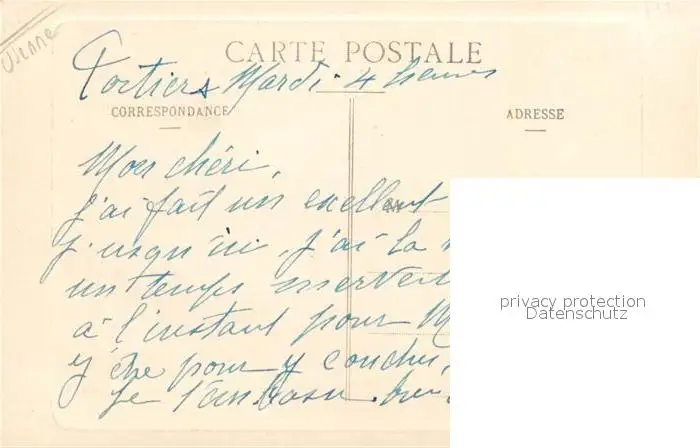 Vienne
CARTE POSTALE
Poitiers Mardi 4 heures
CORRESPONDANCE
ADRESSE
Mon chéri,
j'ai fait un excellent
jusqu'ici, j'ai la
un temps
à l'instant pour M
y être pour y coucher,
Je t'embrasse
privacy protection
Datenschutz